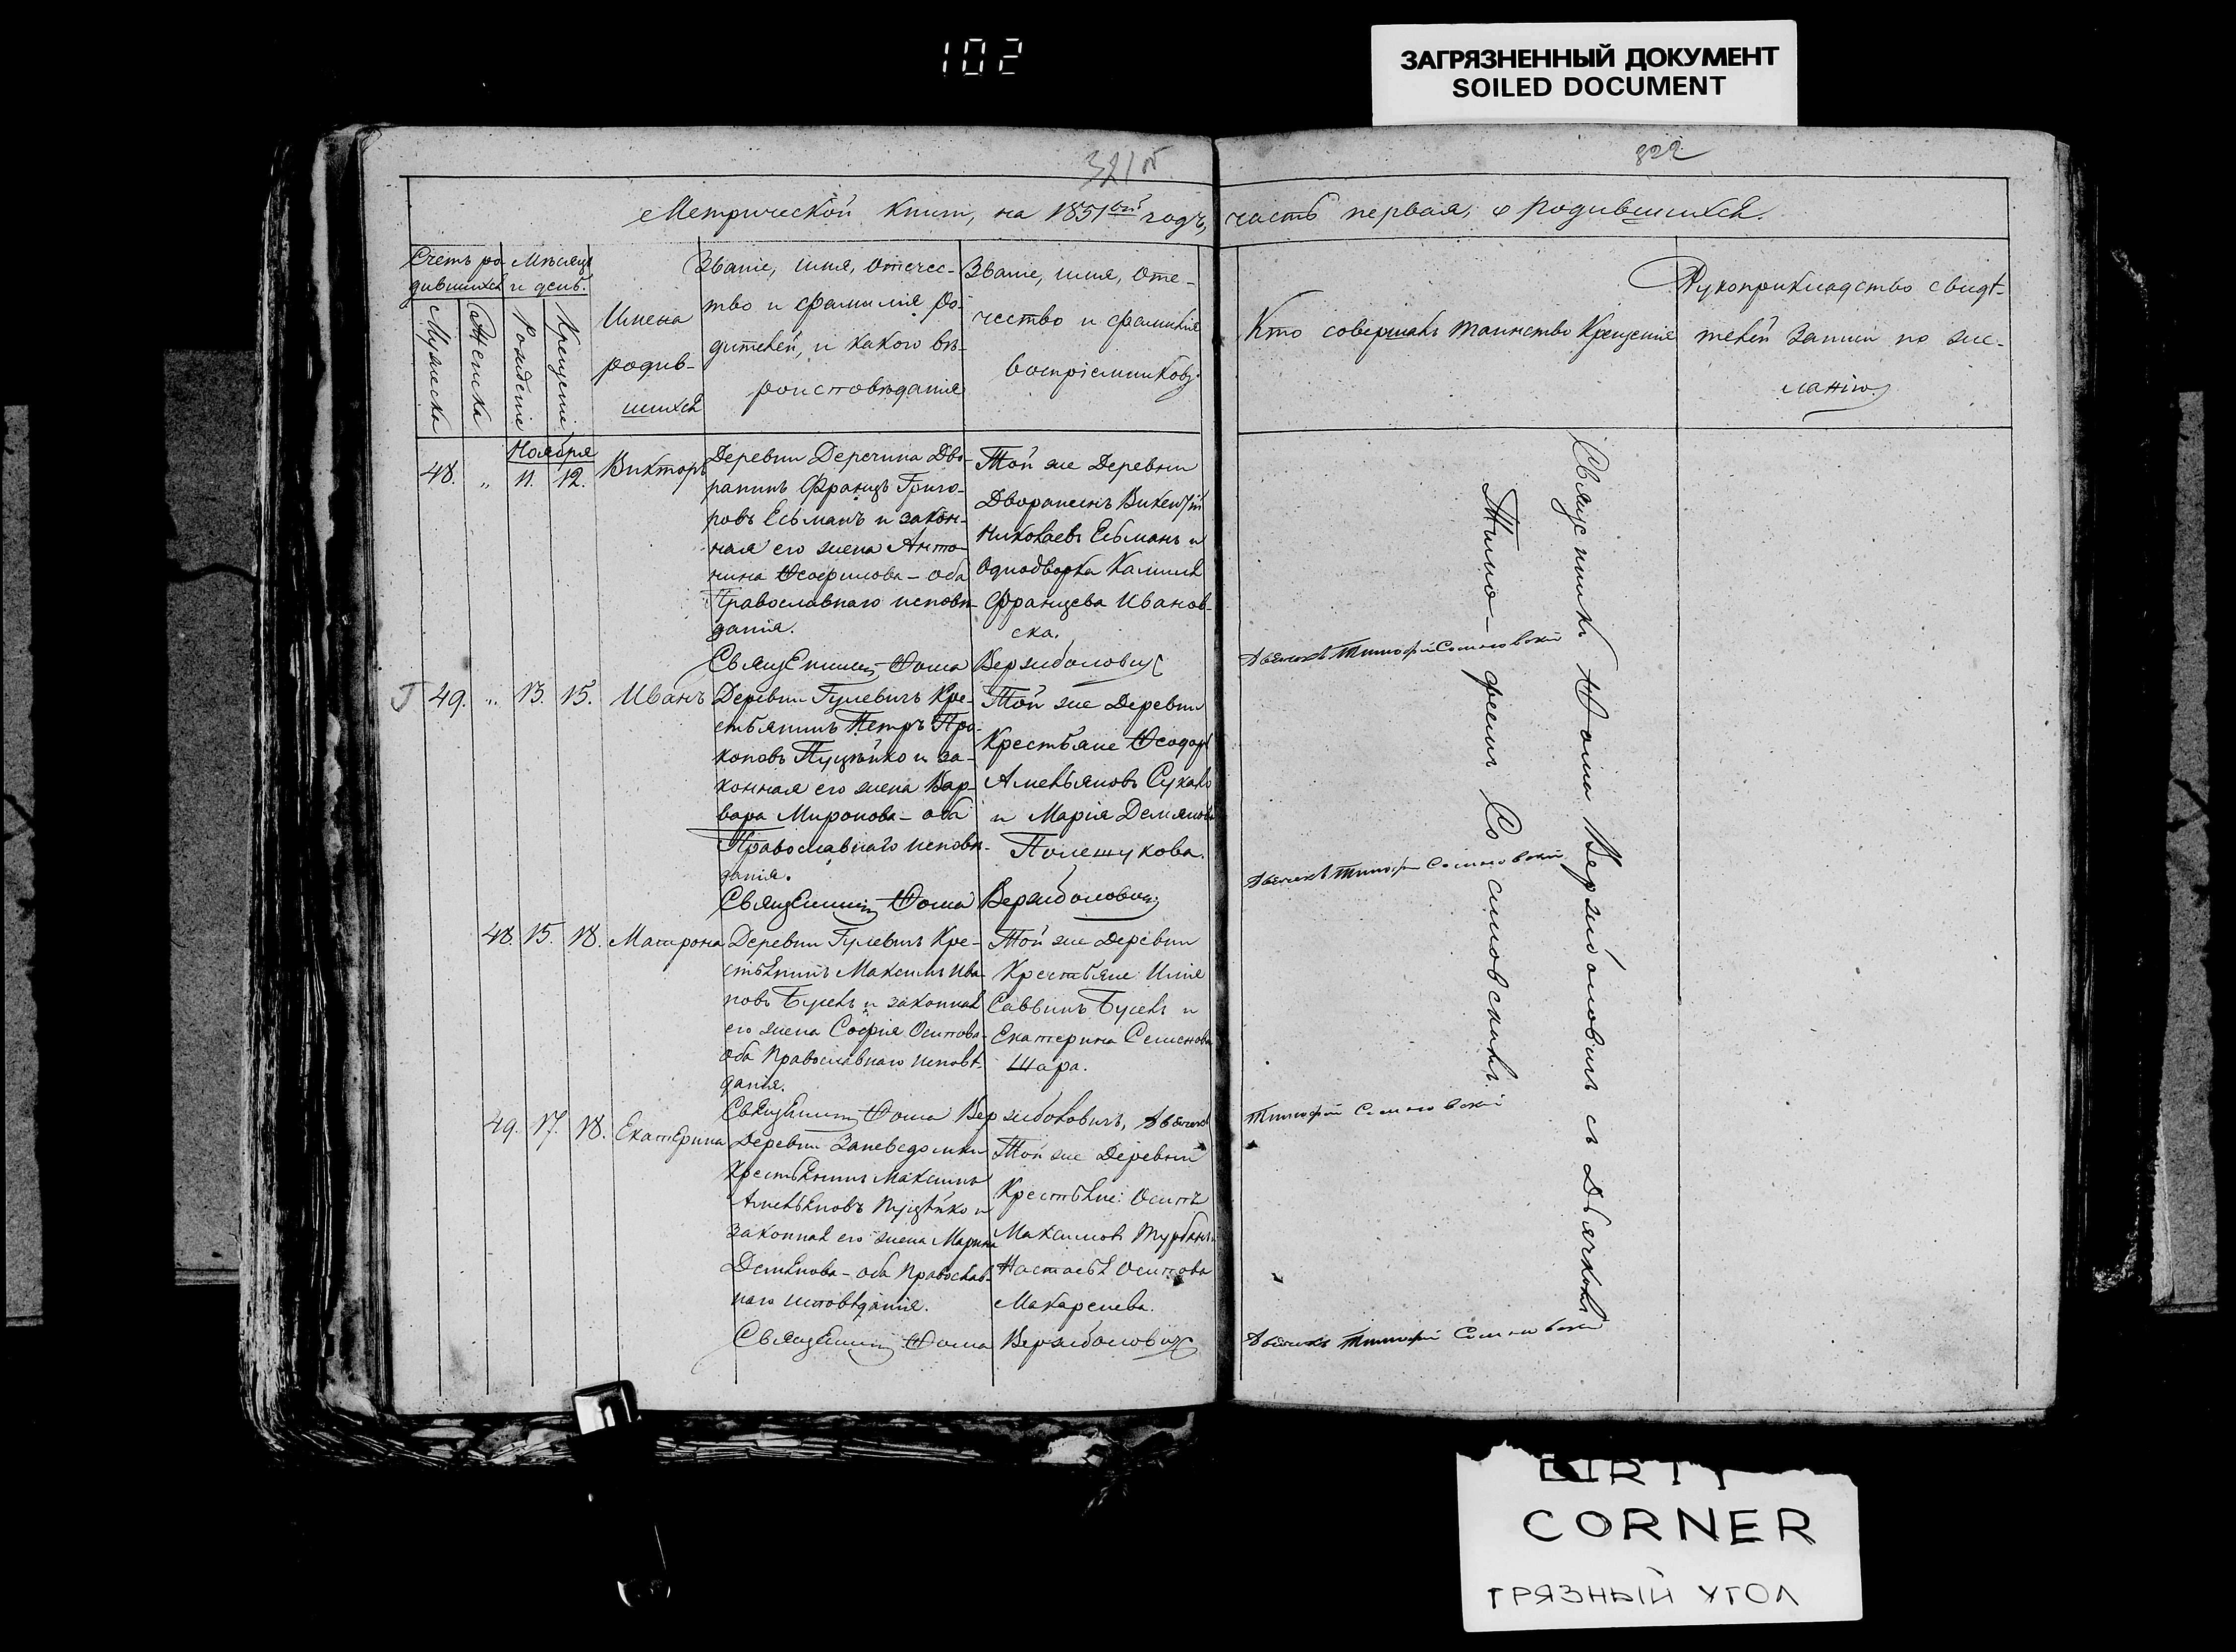 102
ЗАГРЯЗНЕННЫЙ ДОКУМЕНТ
SOILED DOCUMENT
822
Метрической книги, на 1851ый годъ, часть первая, о родившихся.
Счетъ ро-
дившихся
Мужеска
Женска
Мѣсяцъ
и день.
Рожденіе
Крещеніе
Имена
родив-
шихся
Званіе, имя, отечес-
тво и фамилія ро-
дителей, и какого вѣ-
роисповѣданія
Званіе, имя, оте-
чество и фамилія
воспріемниковъ.
Кто совершалъ таинство Крещенія
Рукоприкладство свидѣ-
телей записи по же-
ланію.
Ноября
48. „ 11. 12. Викторъ
Деревни Деречина Дво-
рянинъ Францъ Григо-
ровъ Есьманъ и закон-
ная его жена Анто-
нина Ѳеофилова - оба
Православнаго исповѣ-
данія.
Той же Деревни
Дворянинъ Викентій
Николаевъ Есьманъ и
Однодворка Камиля
Францева Иванов-
ска.
Священникъ Ѳома Вержболовичъ
Дьячокъ Тимофей Сосиновскій
49. „ 13. 15. Иванъ
Деревни Гулевичъ Кре-
стьянинъ Петръ Про-
коповъ Пуцѣйко и за-
конная его жена Вар-
вара Миронова - оба
Православнаго исповѣ-
данія.
Той же Деревни
Крестьяне Ѳеодоръ
Амельяновъ Сукало
и Марія Демянова
Полещукова.
Священникъ Ѳома Вержболовичъ
Дьячокъ Тимофей Сосиновскій
48. 15. 18. Матрона
Деревни Гулевичъ Кре-
стьянинъ Максимъ Ива-
новъ Бусель и законная
его жена Софія Осипова-
оба Православнаго исповѣ-
данія.
Той же Деревни
Крестьяне: Илія
Саввинъ Бусель и
Екатерина Семенова
Шара.
Священникъ Ѳома Вержболовичъ, Дьячокъ Тимофей Сосиновскій
49. 17. 18. Екатерина
Деревни
Крестьянинъ Максимъ
Амельяновъ Пуцѣйко и
законная его жена Марина
Демьянова - оба Православ-
наго исповѣданія.
Той же Деревни
Крестьяне: Осипъ
Максимовъ
Настасья Осипова
Макаренева.
Священникъ Ѳома Вержболовичъ
Дьячокъ Тимофей Сосиновскій
Священникъ Ѳома Вержболовичъ съ Дьячкомъ
Тимофеемъ Сосиновскимъ.
DIRTY
CORNER
ГРЯЗНЫЙ УГОЛ